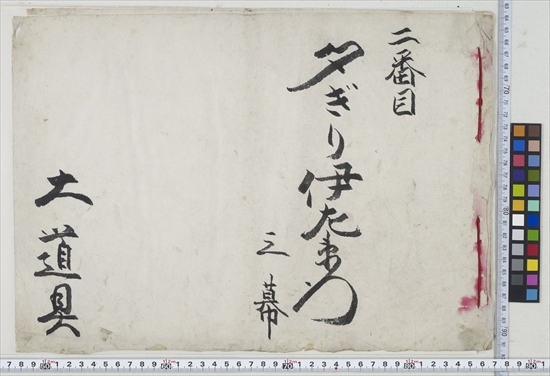 二番目
夕ぎり伊左衛門
三幕
大道具